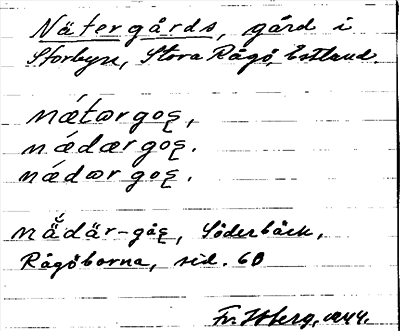 Nätergårds, gård i
Storbyn, Stora Rågö, Estland.
nǽtərgoʂ,
nǽdærgoʂ.
nǽdərgoʂ.
nä̆́där-gåʂ, Söderbäck,
Rågöborna, sid. 60
Fr. Isberg, 1944.